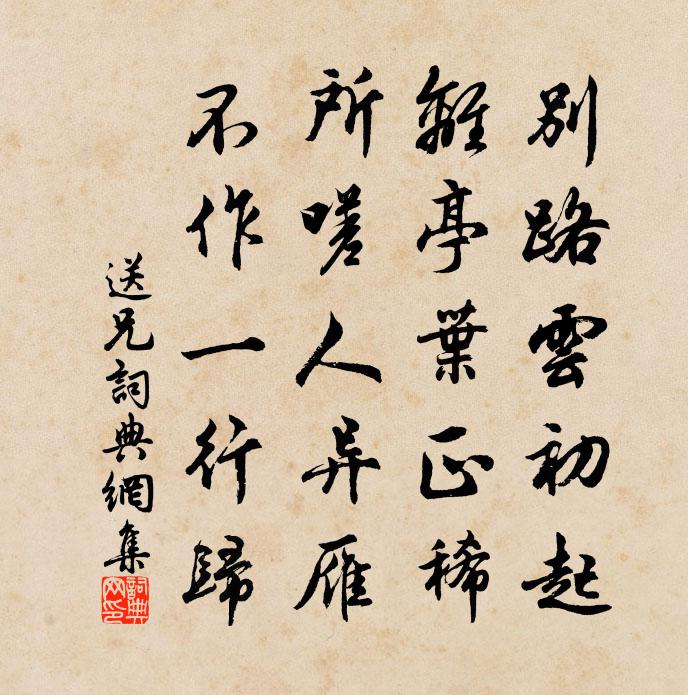 別路雲初起
離亭葉正稀
所嗟人异雁
不作一行歸
送兄詞典網集
詞典网印